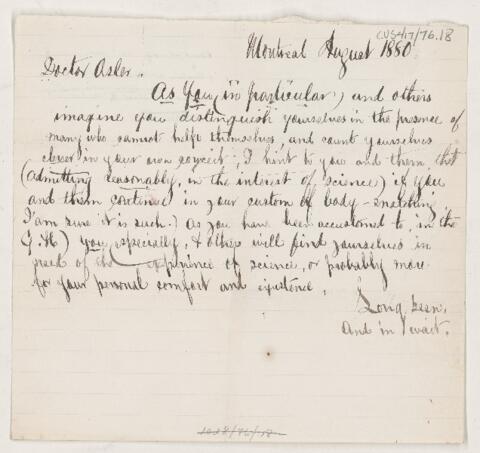 CUS417/76.18
Montreal August 1880
Doctor Osler.
As You, (in particular) and others
imagine you distinguish yourselves in the presence of
many who cannot help themselves, and count yourselves
clever in your own conceit; I hint to you and them that
(admitting reasonably, in the interest of science) if you
and them continue in your custom of body-snatching
I'am sure it is such.) as you have been accustomed to, in the
G.H) you especially, & other will find yourselves in
need of the experience of science, or probably more
for your personal comfort and existence.
Long seen.
And in wait.